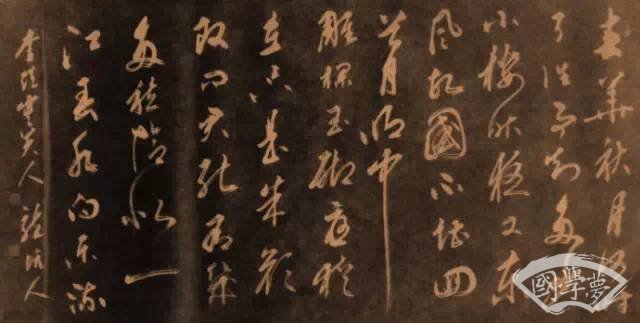 春華秋月何時
了往事知多
小樓昨夜又東
風故國不堪回
首月明中
雕欄玉砌應猶
在只是朱顏
改問君能有幾
多愁恰似一
江春水向東流
美人
國學夢